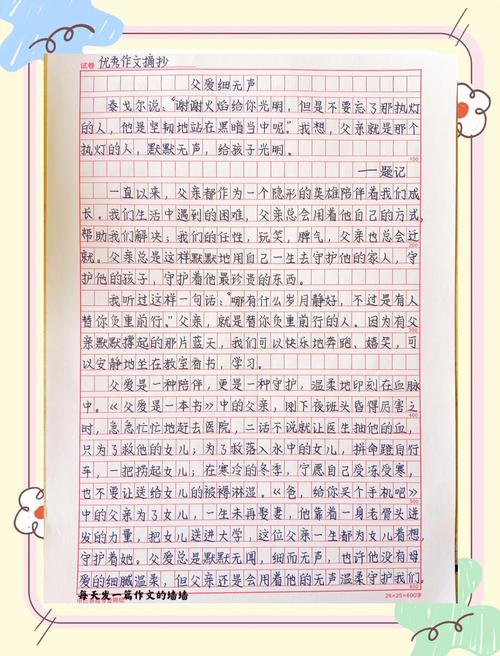 试卷 优秀作文摘抄
父爱细无声
泰戈尔说："谢谢火焰给你光明，但是不要忘了那执灯
的人，他是坚韧地站在黑暗当中呢。"我想，父亲就是那个
执灯的人，默默无声，给孩子光明。
100
——题记
一直以来，父亲都作为一个隐形的英雄陪伴着我们成
长。我们生活中遇到的困难，父亲总会用着他自己的方式，
帮助我们解决；我们的任性，玩笑，脾气，父亲也总会迁
200
就。父亲总是这样默默地用自己一生去守护他的家人，守
护他的孩子，守护着他最珍贵的东西。
我听过这样一句话："哪有什么岁月静好，不过是有人
替你负重前行。"父亲，就是替你负重前行的人。因为有父
300
亲默默撑起的那片蓝天，我们可以快乐地奔跑、嬉笑，可
以安静地坐在教室看书，学习。
父爱是一种陪伴，更是一种守护，温柔地印刻在血脉
中。《父爱是一本书》中的父亲，刚下夜班头昏得厉害之
400
时，急急忙忙地赶去医院，二话不说就让医生抽他的血，
只为了救他的女儿；为了救落入水中的女儿，拼命蹬自行
车，一把捞起女儿；在寒冷的冬季，宁愿自己受冻受寒，
也不要让送给女儿的被褥淋湿。《爸，给你买个手机吧》
500
中的父亲为了女儿，一生未再娶妻，他靠着一身老骨头迸
发的力量，把女儿送进大学，这位父亲一生都为女儿着想，
守护着她。父爱总是默默无闻，细而无声，也许他没有母
爱的细腻温柔，但父亲还是会用着他的无声温柔守护我们。
600
每天发一篇作文的墙墙
24×25=600字